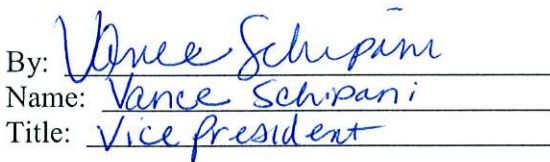 By: Vance Schipani
Name: Vance Schipani
Title: Vice President